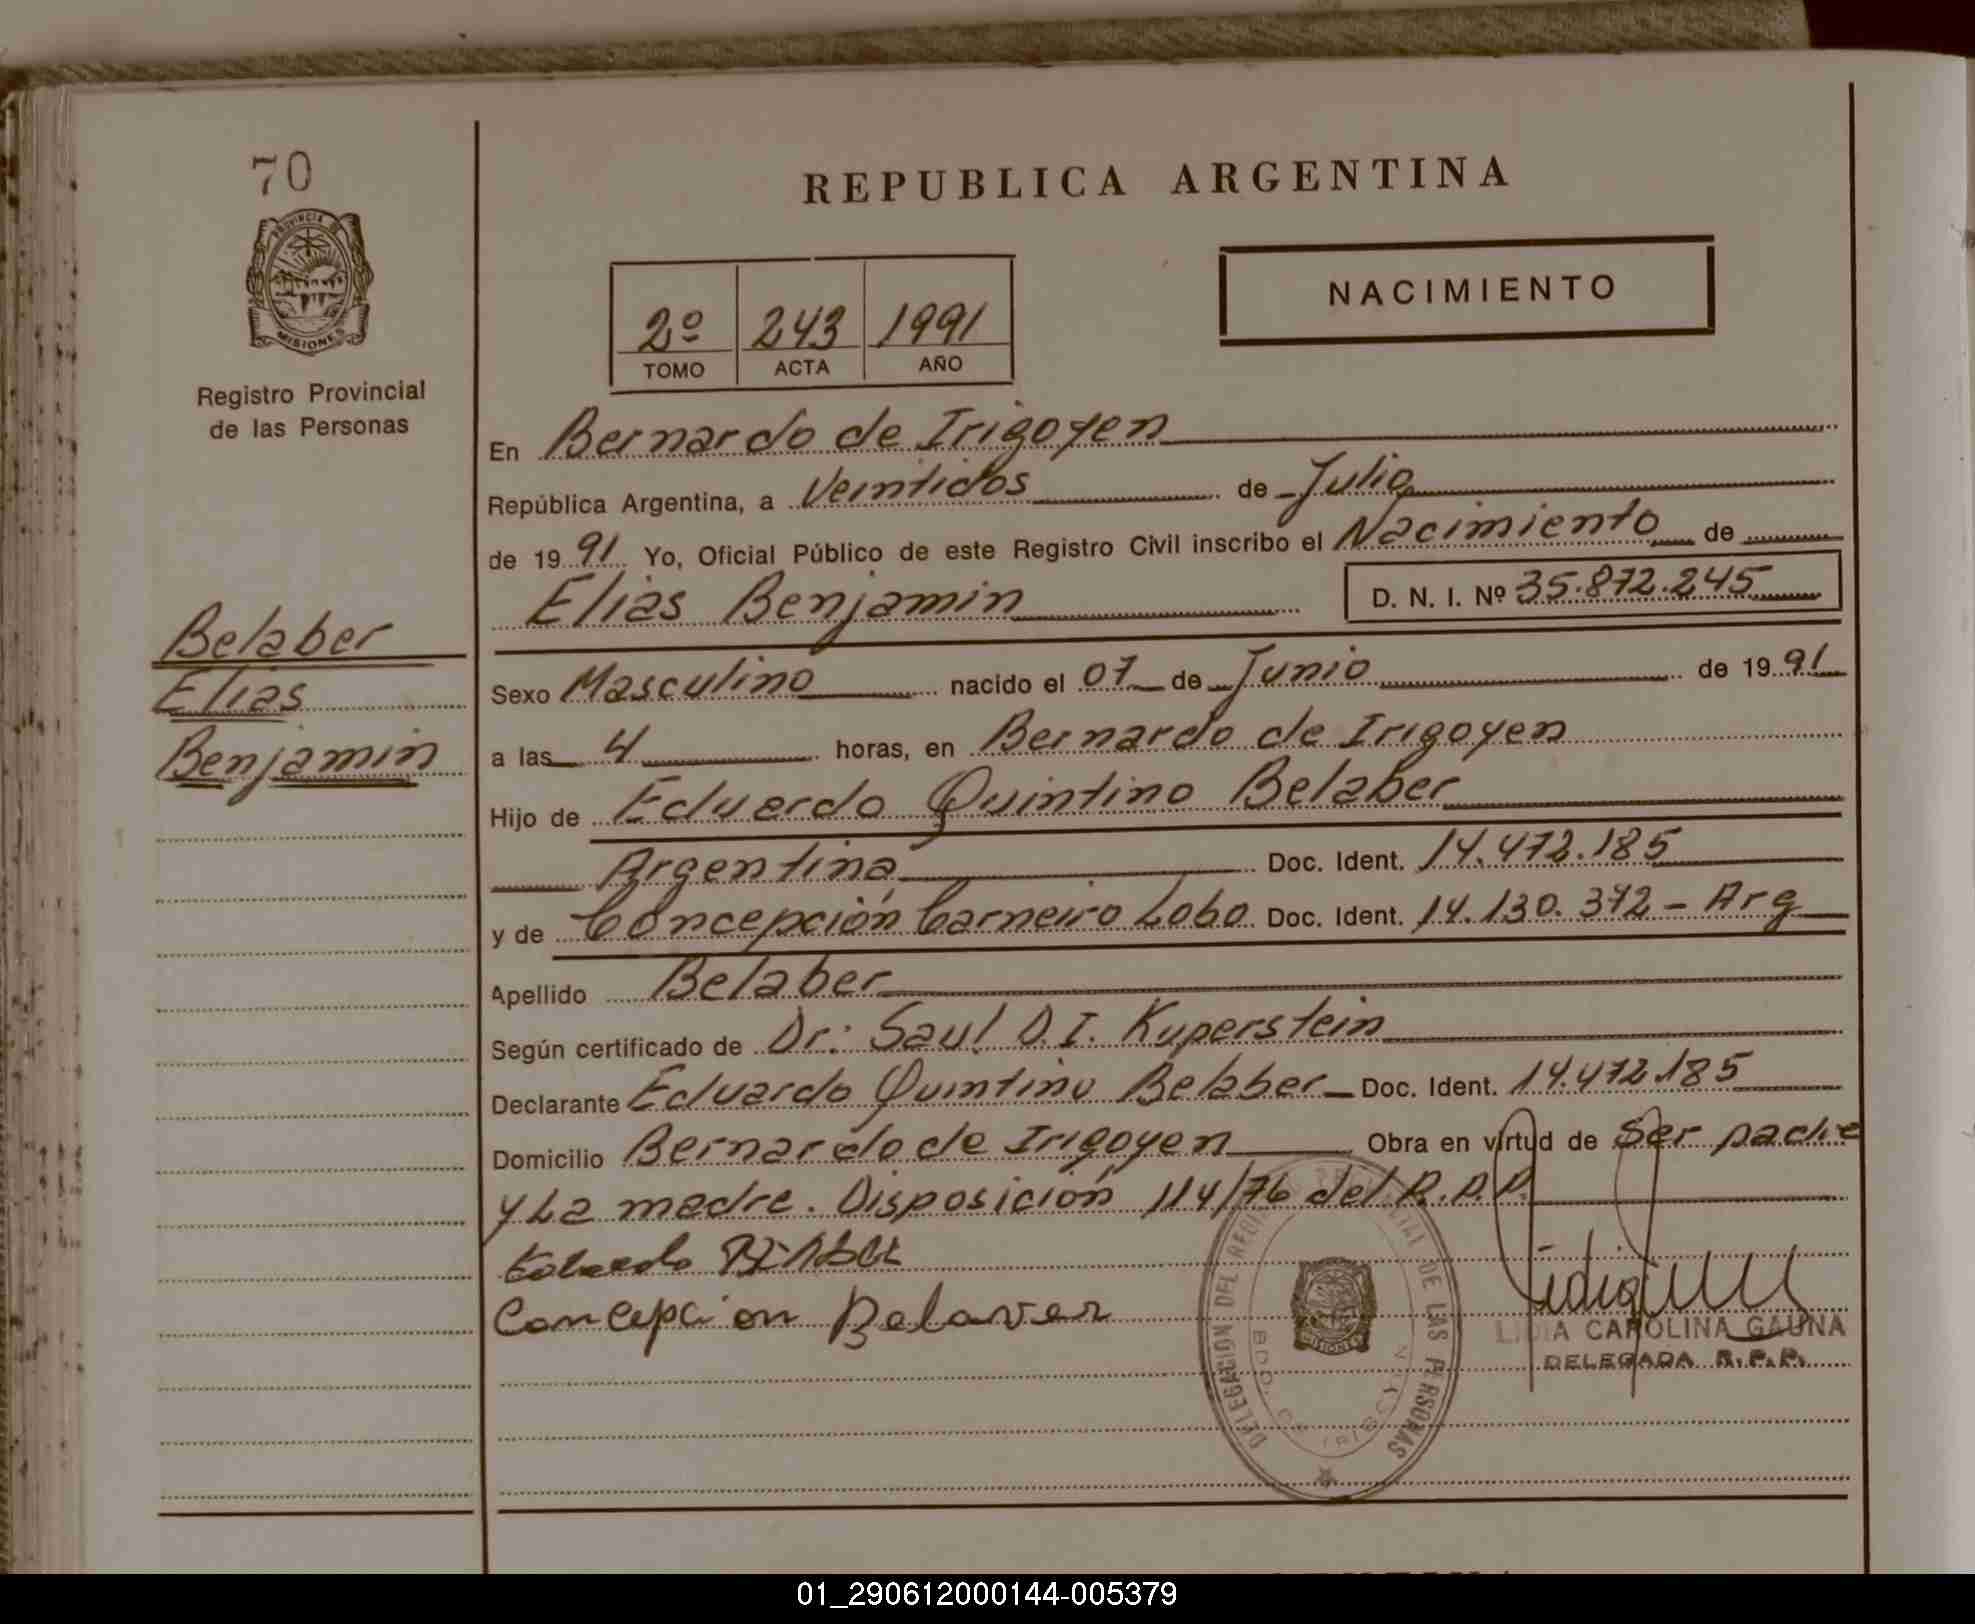 70
PROVINCIA DE
MISIONES
Registro Provincial
de las Personas
Belaber
Elias
Benjamin
REPUBLICA ARGENTINA
NACIMIENTO
2º 243 1991
TOMO ACTA AÑO
En Bernardo de Irigoyen
República Argentina, a Veintidos de Julio
de 19 91 Yo, Oficial Público de este Registro Civil inscribo el Nacimiento de
Elias Benjamin D. N. I. Nº 35.872.245
Sexo Masculino nacido el 07 de Junio de 19 91
a las 4 horas, en Bernardo de Irigoyen
Hijo de Eduardo Quintino Belaber
Argentina Doc. Ident. 14.472.185
y de Concepción Carneiro Lobo Doc. Ident. 14.130.372 - Arg
Apellido Belaber
Según certificado de Dr: Saul D.I. Kuperstein
Declarante Eduardo Quintino Belaber Doc. Ident. 14.472.185
Domicilio Bernardo de Irigoyen Obra en virtud de Ser padre
y La madre. Disposición 114/76 del R.P.P.
Eduardo
Concepcion Belaver
DELEGACION DEL REGISTRO PROVINCIAL DE LAS PERSONAS
MISIONES
LIDIA CAROLINA GAUNA
DELEGADA R.P.P.
01_290612000144-005379